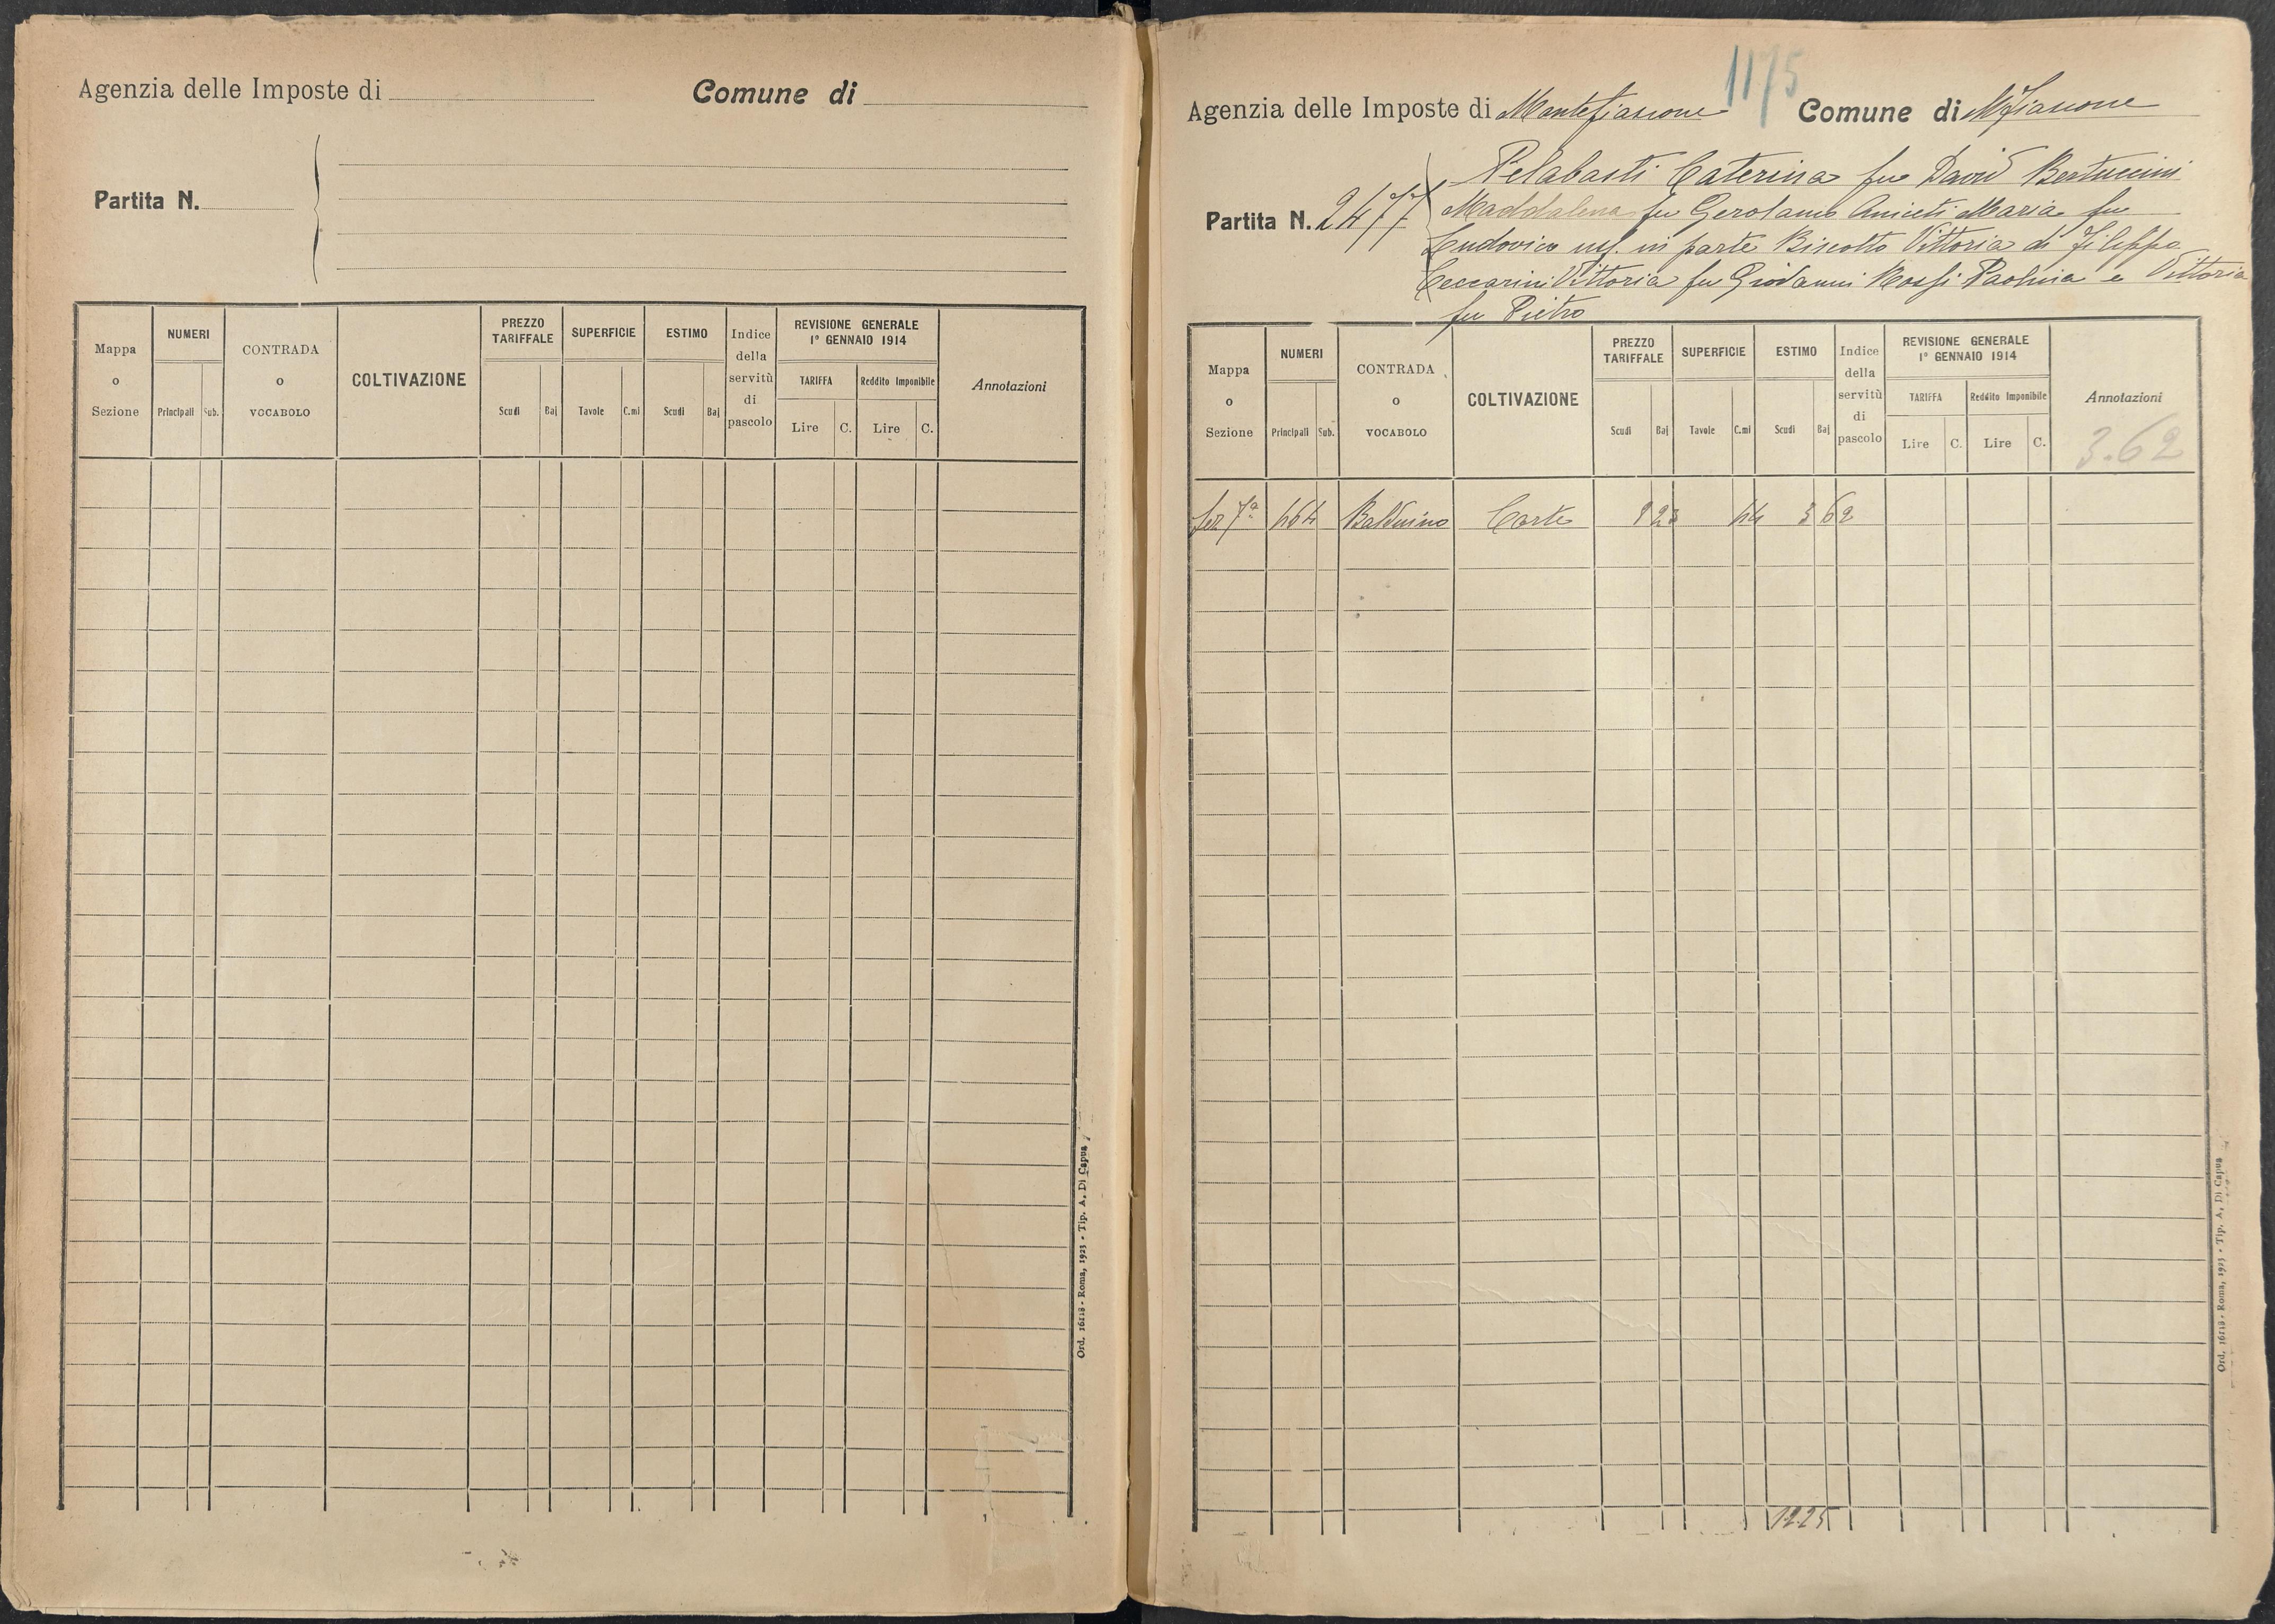 Agenzia delle Imposte di
Comune di
Partita N.
Mappa o Sezione
NUMERI
Principali
Sub.
CONTRADA o VOCABOLO
COLTIVAZIONE
PREZZO TARIFFALE
Scudi
Baj
SUPERFICIE
Tavole
C.mi
ESTIMO
Scudi
Baj
Indice della servitù di pascolo
REVISIONE GENERALE
1° GENNAIO 1914
TARIFFA
Lire
C.
Reddito Imponibile
Lire
C.
Annotazioni
Ord. 16118 - Roma, 1923 - Tip. A. Di Capua
1175
Agenzia delle Imposte di Montefiascone
Comune di Mfiascone
Partita N. 2477
Pelabasti Caterina fu David Bertuccini
Maddalena fu Gerolamo Aniceti Maria fu
Ludovico usf. in parte Biscotto Vittoria di Filippo
Ceccarini Vittoria fu Giovanni Rossi Paolina e Vittoria
fu Pietro
Mappa o Sezione
NUMERI
Principali
Sub.
CONTRADA o VOCABOLO
COLTIVAZIONE
PREZZO TARIFFALE
Scudi
Baj
SUPERFICIE
Tavole
C.mi
ESTIMO
Scudi
Baj
Indice della servitù di pascolo
REVISIONE GENERALE
1° GENNAIO 1914
TARIFFA
Lire
C.
Reddito Imponibile
Lire
C.
Annotazioni
3.62
Sez 7a 464 Balduino Corte 8 23 44 3 62
1225
Ord. 16118 - Roma, 1923 - Tip. A. Di Capua